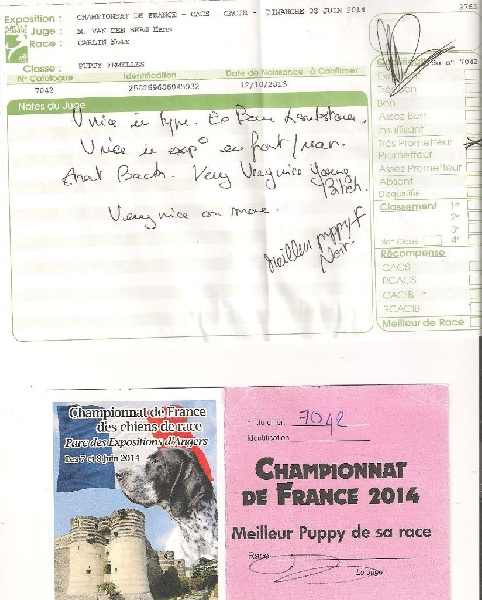 Exposition : CHAMPIONNAT DE FRANCE - CACS - CACIB - DIMANCHE 08 JUIN 2014
3768
Juge : M. VAN DEN BERG Hans
Race : CARLIN Noir
Classe : PUPPY FEMELLES
N° Catalogue Identification Date de Naissance à Confirmer
7042 250269606045932 12/10/2013
Notes du Juge
V nice in type.
V nice in exp°
Short Back. Very Very nice young
Bitch.
Very nice on move.
Meilleur puppy F
Noir
n° 7042
Très Bon
Bon
Assez Bon
Insuffisant
Très Prometteur
Prometteur
Assez Prometteur
Absent
Disqualifié
Classement 1er
2e
3e
Non Classé 4e
Récompense
CACS
RCACS
CACIB
RCACIB
Meilleur de Race
Championnat de France
des chiens de race
Parc des Expositions d'Angers
Les 7 et 8 juin 2014
7042
Identification
CHAMPIONNAT
DE FRANCE 2014
Meilleur Puppy de sa race
Race
Le Juge